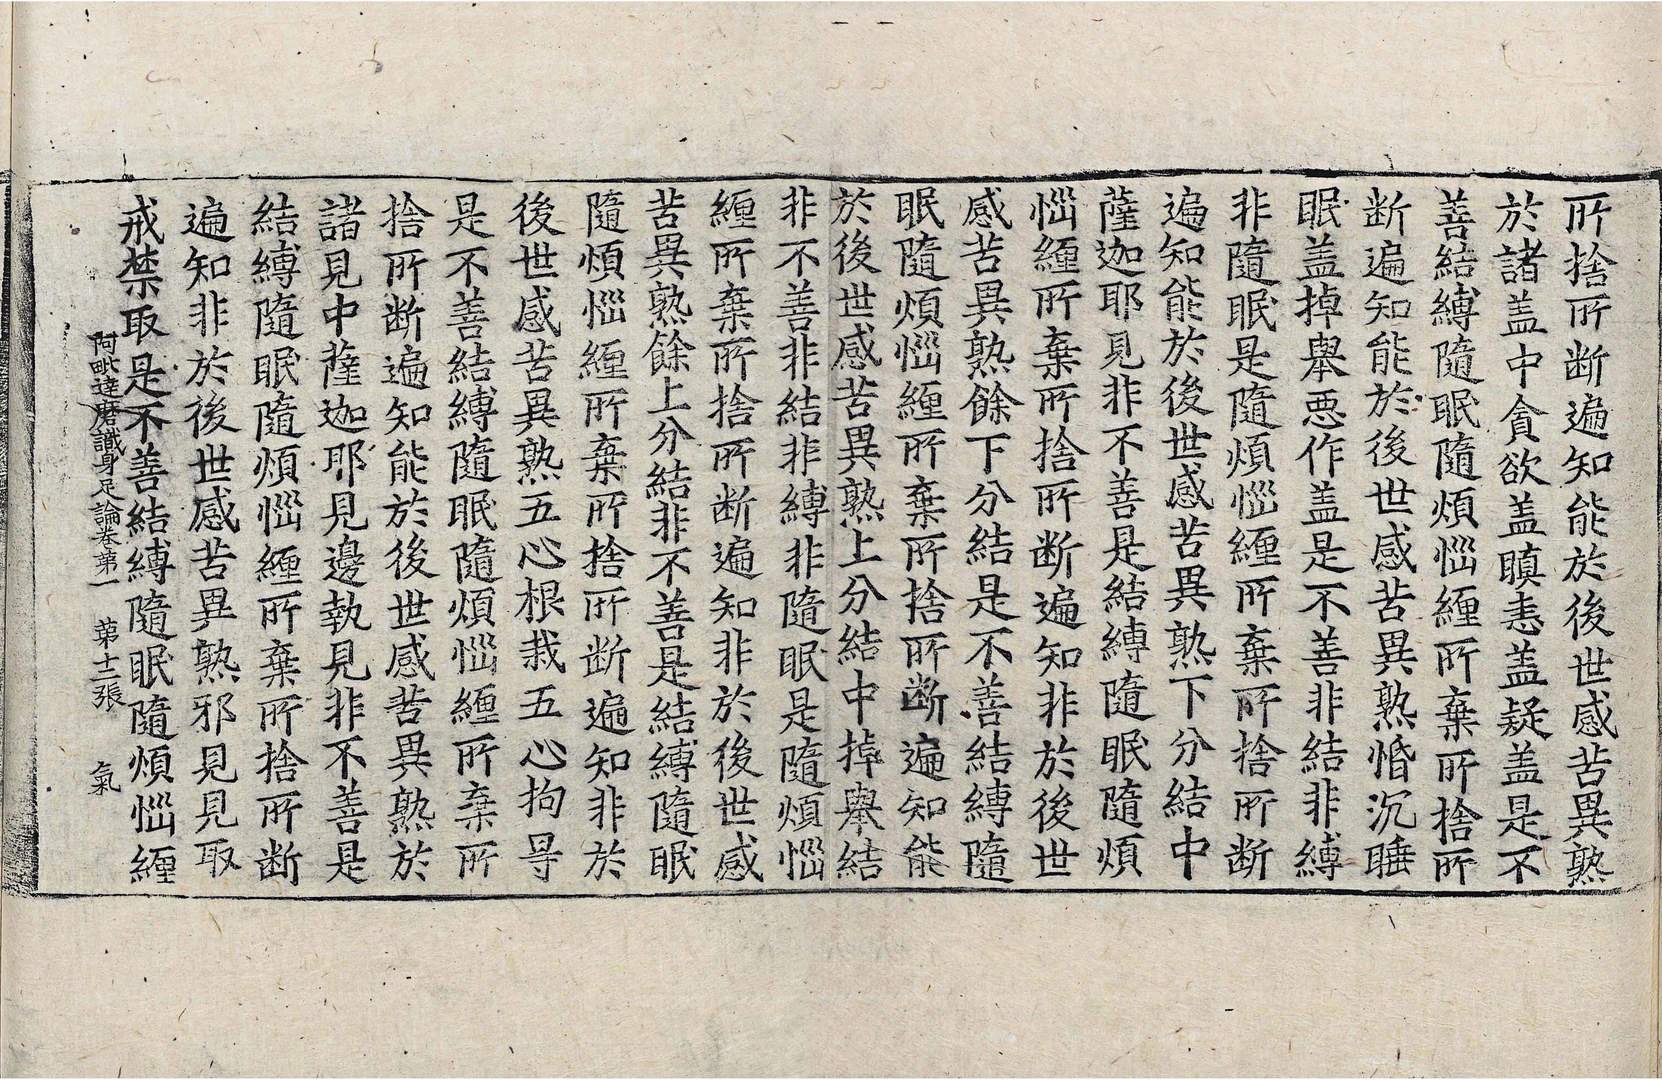 所捨所断遍知能於後世感苦異熟
於諸盖中貪欲盖瞋恚盖疑盖是不
善結縛隨眠隨煩惱纏所棄所捨所
断遍知能於後世感苦異熟惛沉睡
眠盖掉舉惡作盖是不善非結非縛
非隨眠是隨煩惱纏所棄所捨所断
遍知能於後世感苦異熟下分結中
薩迦耶見非不善是結縛隨眠隨煩
惱纏所棄所捨所断遍知非於後世
感苦異熟餘下分結是不善結縛隨
眠隨煩惱纏所棄所捨所断遍知能
於後世感苦異熟上分結中掉舉結
非不善非結非縛非隨眠是隨煩惱
纏所棄所捨所断遍知非於後世感
苦異熟餘上分結非不善是結縛隨眠
隨煩惱纏所棄所捨所断遍知非於
後世感苦異熟五心根栽五心拘㝵
是不善結縛隨眠隨煩惱纏所棄所
捨所断遍知能於後世感苦異熟於
諸見中薩迦耶見邊執見非不善是
結縛隨眠隨煩惱纏所棄所捨所断
遍知非於後世感苦異熟邪見見取
戒禁取是不善結縛隨眠隨煩惱纏
阿毗達磨識身足論卷第一　第十二張　氣